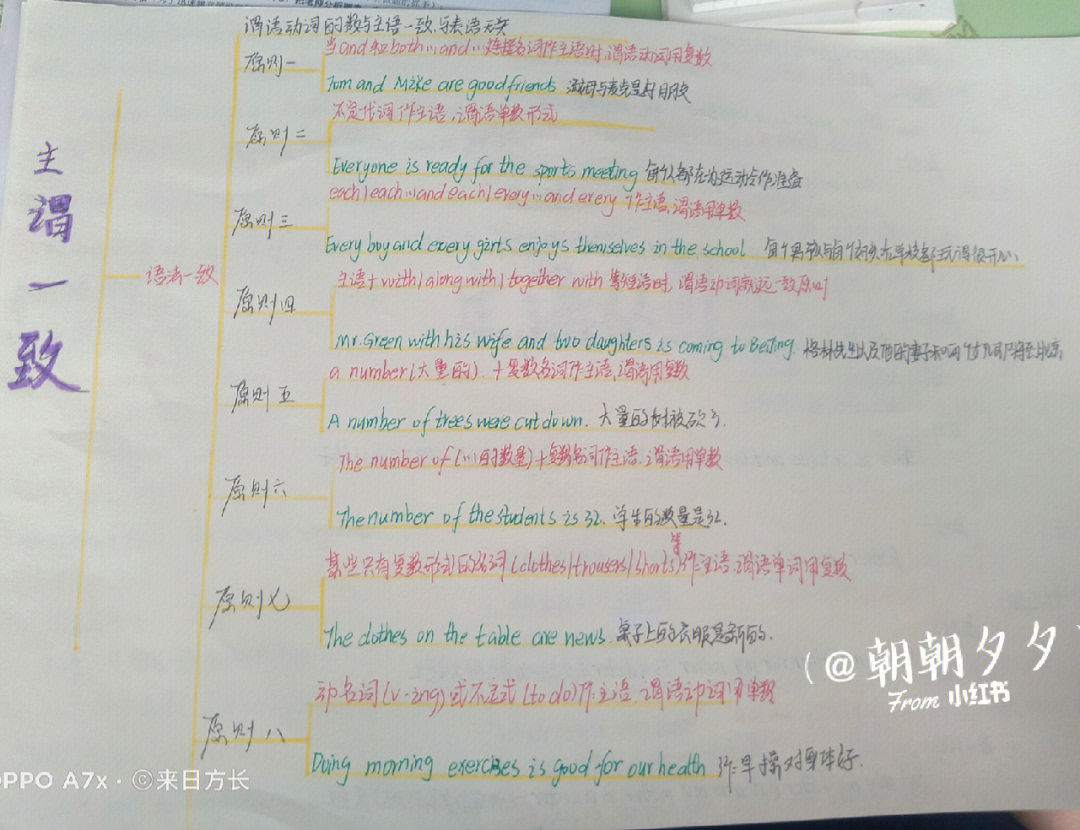 谓语动词的数与主语一致，与表语无关
当and和both…and…连接名词作主语时，谓语动词用复数
原则一
Tom and Mike are good friends 汤姆与麦克是好朋友
不定代词作主语，谓语单数形式
原则二
Everyone is ready for the sports meeting 每个人都在为运动会作准备
each/each…and each/every…and every 作主语，谓语用单数
原则三
Every boy and every girls enjoys themselves in the school 每个男孩与每个女孩在学校都玩得很开心
语法一致
主语+with/along with/together with 等短语时，谓语动词就远一致原则
原则四
Mr. Green with his wife and two daughters is coming to Beijing. 格林先生以及他的妻子和两个女儿
a number (大量的) +复数名词作主语，谓语用复数
原则五
A number of trees were cut down. 大量的树被砍了.
The number of (…的数量)+复数名词作主语，谓语用单数
原则六
The number of the students is 32. 学生的数量是32.
某些只有复数形式的名词(clothes/trousers/shorts)等作主语，谓语单词用复数
原则七
The clothes on the table are news. 桌子上的衣服是新的.
动名词(v-ing)或不定式(to do)作主语，谓语动词用单数
原则八
Doing morning exercises is good for our health 作早操对身体好.
主谓一致
(@朝朝夕夕
From 小红书
OPPO A7x · ©来日方长